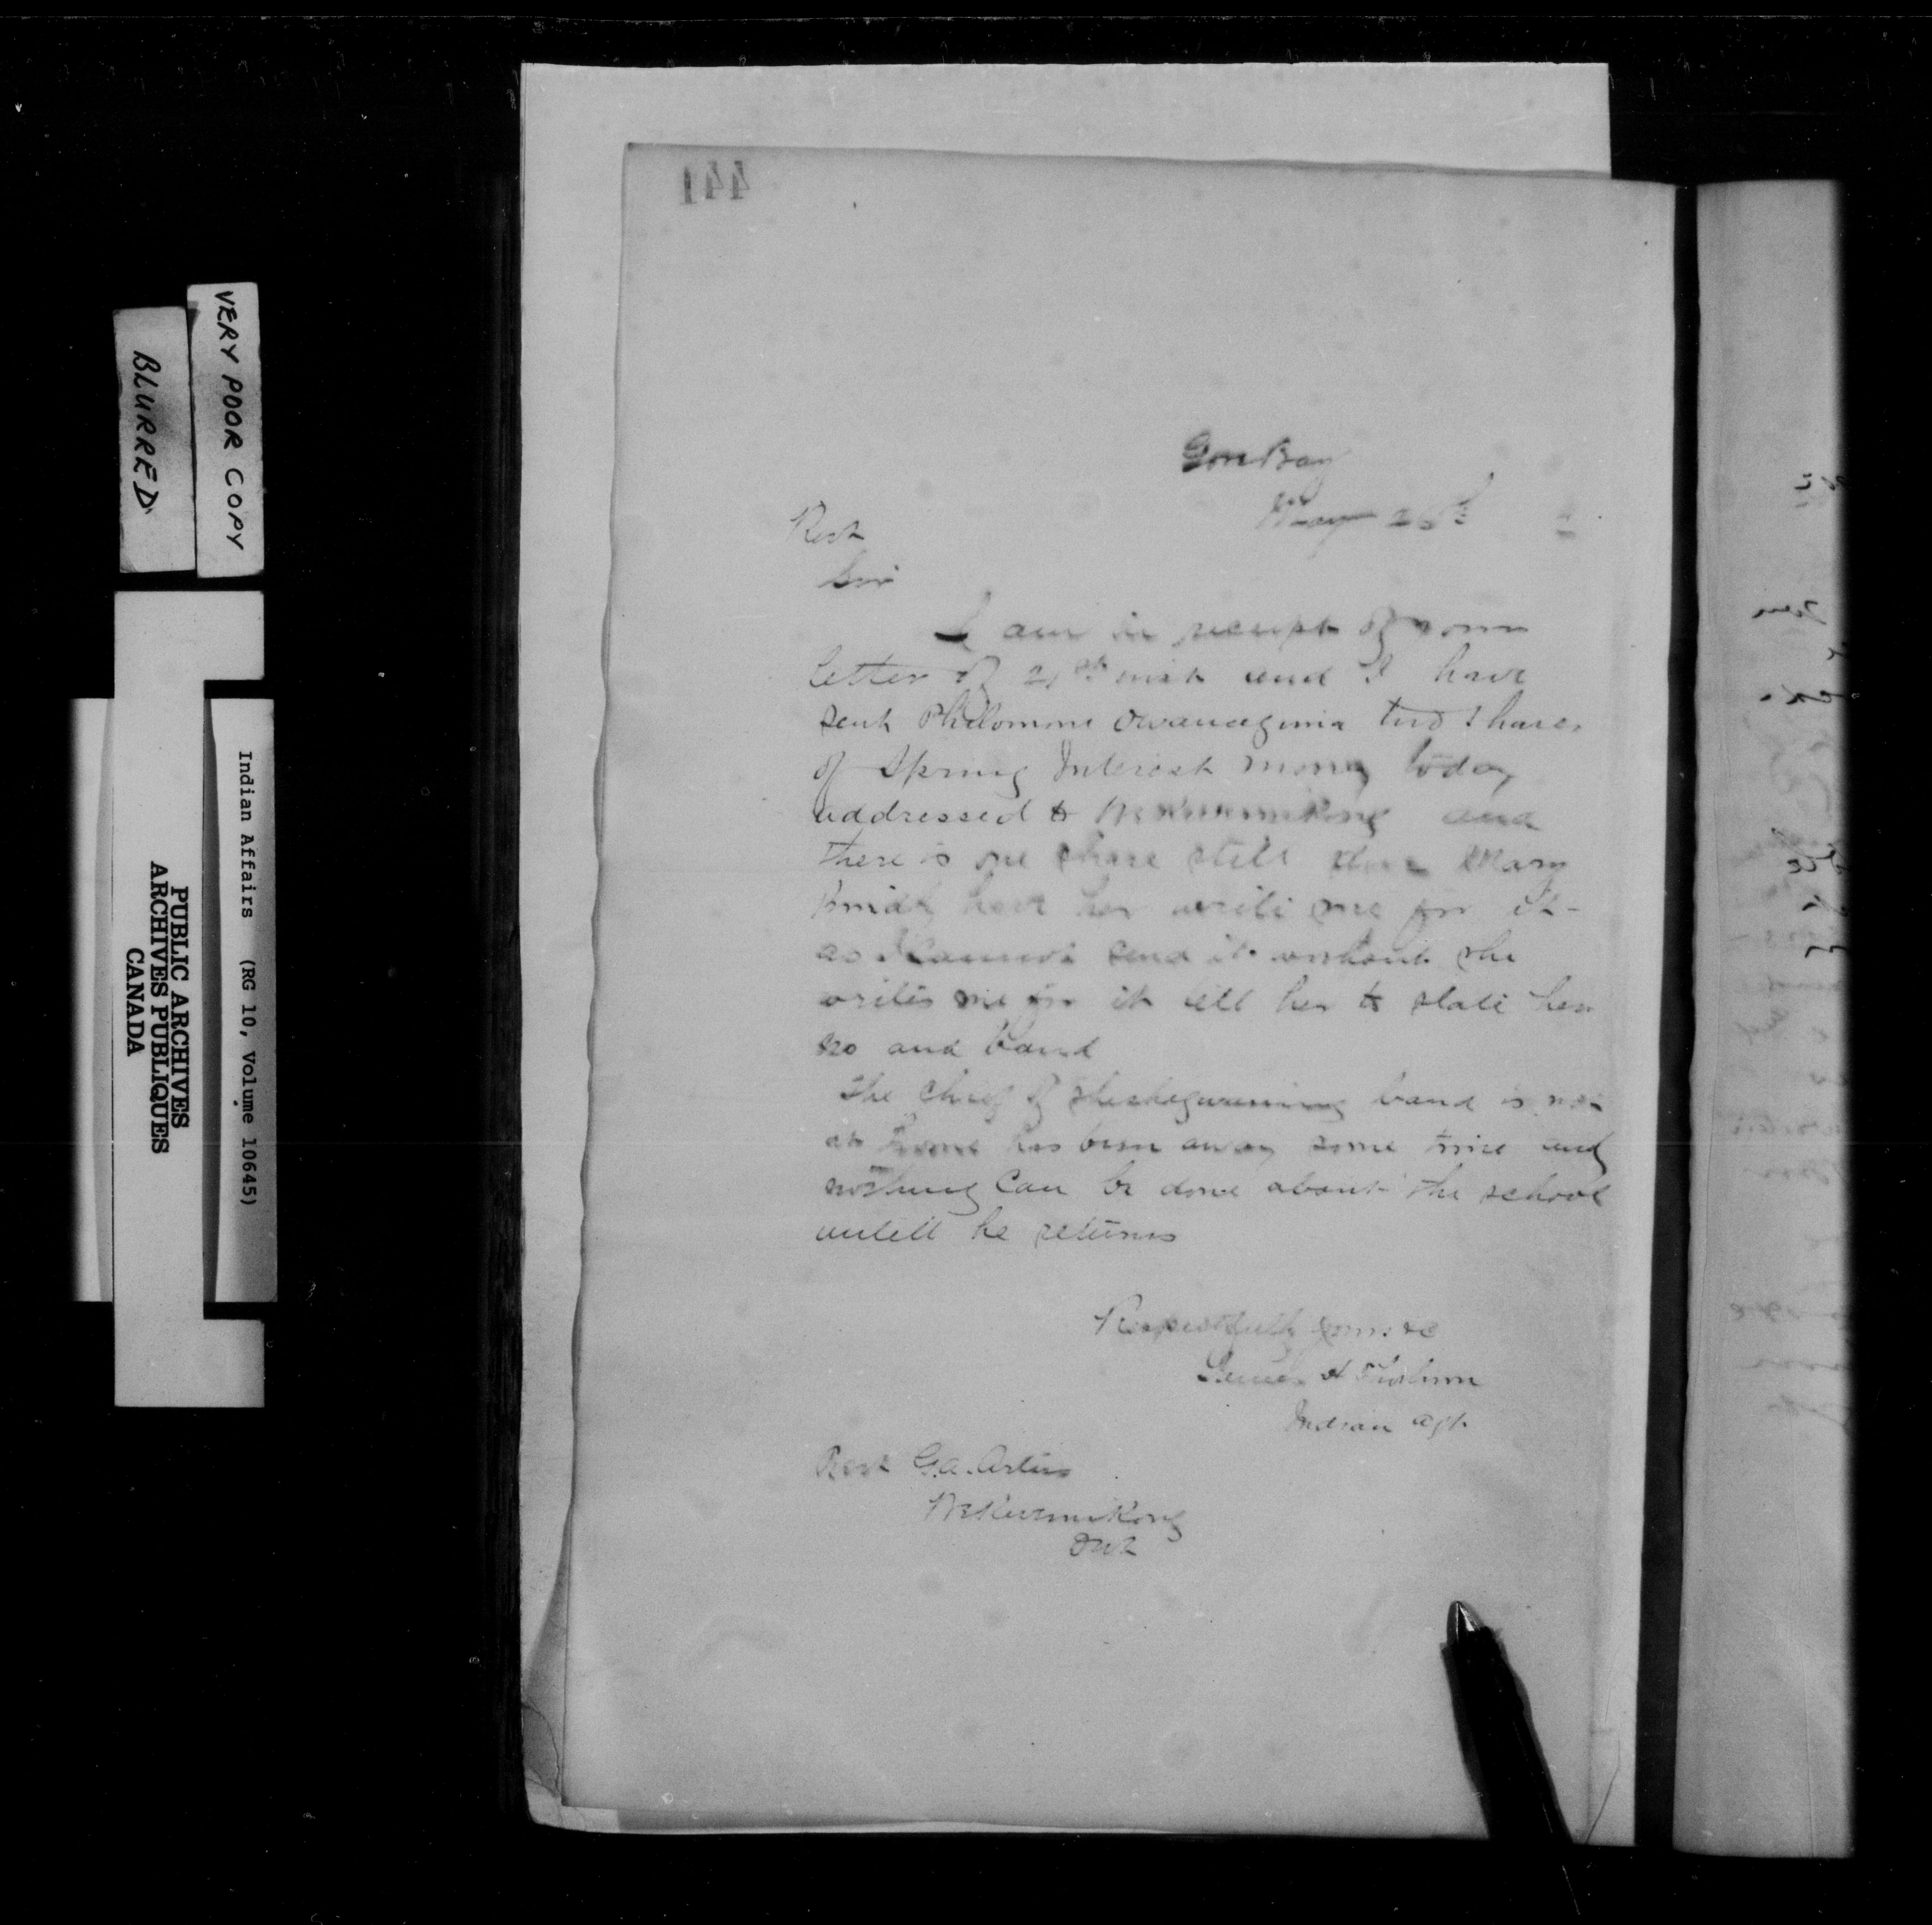 441
Gore Bay
May 26th
Revd
Sir
I am in receipt of your
letter of 21st inst and I have
sent Philomme two shares
of Spring Interest money today
addressed to and
there is one share still due Mary
have her write me for it -
as I cannot send it without she
writes me for it tell her to state her
no and band
The Chief of Sheshegwaning band is not
at home has been away some time and
nothing Can be done about the school
untill he returns
Respectfully yours &c
Indian Agt
Revd G.A. Artus
Wikwemikong
Ont
VERY POOR COPY
BLURRED
Indian Affairs (RG 10, Volume 10645)
PUBLIC ARCHIVES
ARCHIVES PUBLIQUES
CANADA